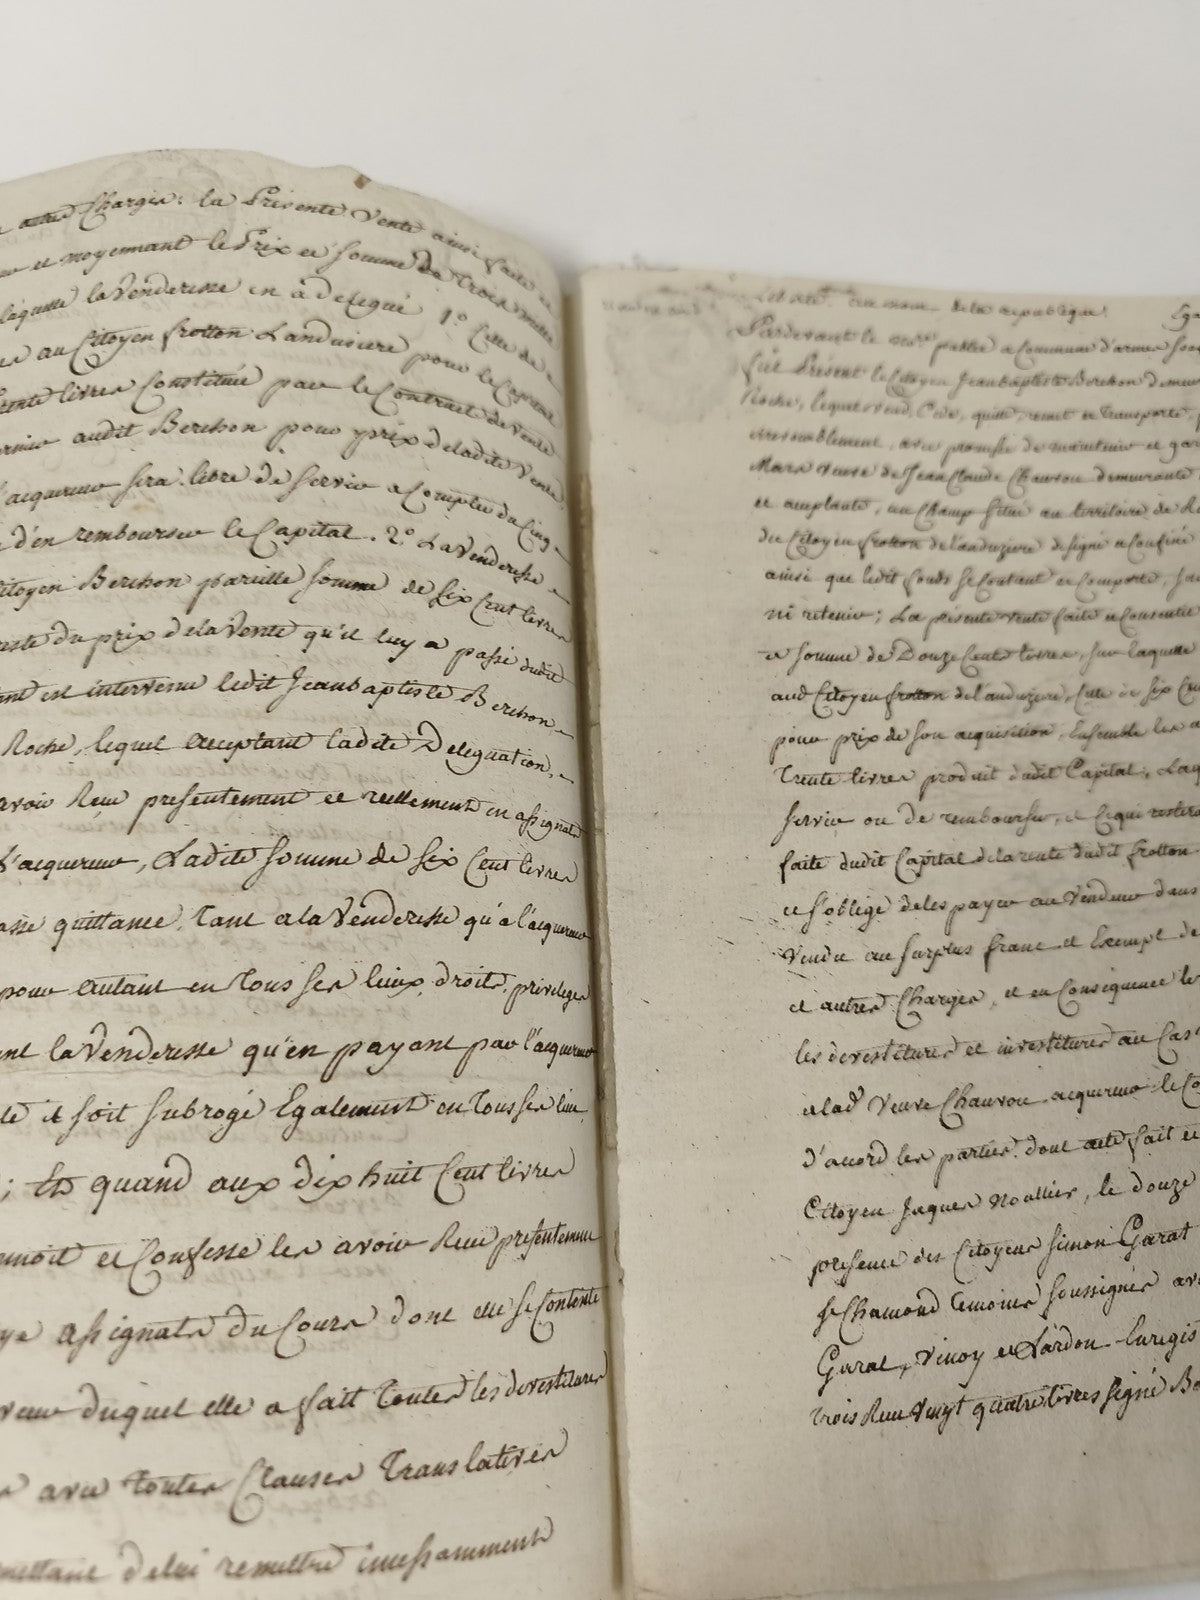 autre Charges: la Présente Vente ainsi faite et
et moyennant le Prix et somme de Trois mille
laquelle la Venderesse en a delegué 1.° Celle de
au Citoyen frotton Landuziere pour le Capital
trente livres Constitué par le Contract de Vente
audit Berchon pour prix deladite Vente
l'acquereur sera libre de servir a Compter du Cinq
d'en rembourser le Capital. 2.° La Venderesse
Citoyen Berchon pareille somme de six Cent livres
reste du prix dela Vente qu'il luy a passé dudit
est intervenu ledit Jeanbaptiste Berchon
Roche, lequel acceptant ladite Delegation,
avoir Reçu presentement et reellement en assignats
l'acquereur, Ladite somme de six Cent livres
passe quittance, tant a la Venderesse qu'a l'acquereur
pour autant en tous ses lieux, droits, privileges
la Venderesse qu'en payant par l'acquereur
il soit subrogé Egalement en tous ses lieu
; Et quand aux dix huit Cent livres
et Confesse les avoir Reçu presentement
assignats du Cours dont elle se Contente
duquel elle a fait toutes les devestitures
avec toutes Clauses Translatives
delui remettre incessamment
Liberté. au nom dela republique. Ega
Pardevant le no.re public a Commune d'armes sous
fut Présent le Citoyen Jeanbaptiste Berchon demeur
Roche, lequel vend, Cede, quitte, remet et transporte,
irrevocablement, avec promesse de maintenir et gar
Mars veuve de Jean Claude Chauvou demeurante
et acceptante, un Champ situé au territoire de R
du Citoyen frotton de l'anduziere designé et Confiné
ainsi que ledit fonds se Contient et Comporte, sa
ni retenir; La présente vente faite et Consentie
et somme de Douze Cents livres, sur laquelle
aud Citoyen frotton de l'anduziere, Celle de six Cen
pour prix de son acquisition, Ensemble les a
Trente livres produit dudit Capital, Laq
servir ou de rembourser, et Cequi restera
faite dudit Capital dela rente dudit frotton
et s'oblige deles payer au Vendeur dans
Vendu au surplus franc et Exempt de
et autres Charges, et en Consequence le
les devestitures et investitures au Cas
alad.e Veuve Chauvou acquereur le Co
d'accord les parties. dont acte fait et
Citoyen Jaques Noallier, le douze
presence des Citoyens Simon Garat
St Chamond temoins soussignés av
Garat, Vinoy et Lardon. Enregis
trois Reçu Vingt quatre livres signé Bo